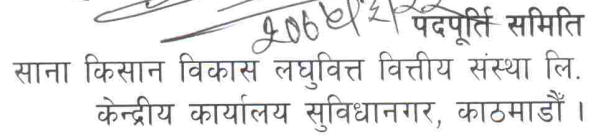 पदपूर्ति समिति
साना किसान विकास लघुवित्त वित्तीय संस्था लि.
केन्द्रीय कार्यालय सुविधानगर, काठमाडौँ ।